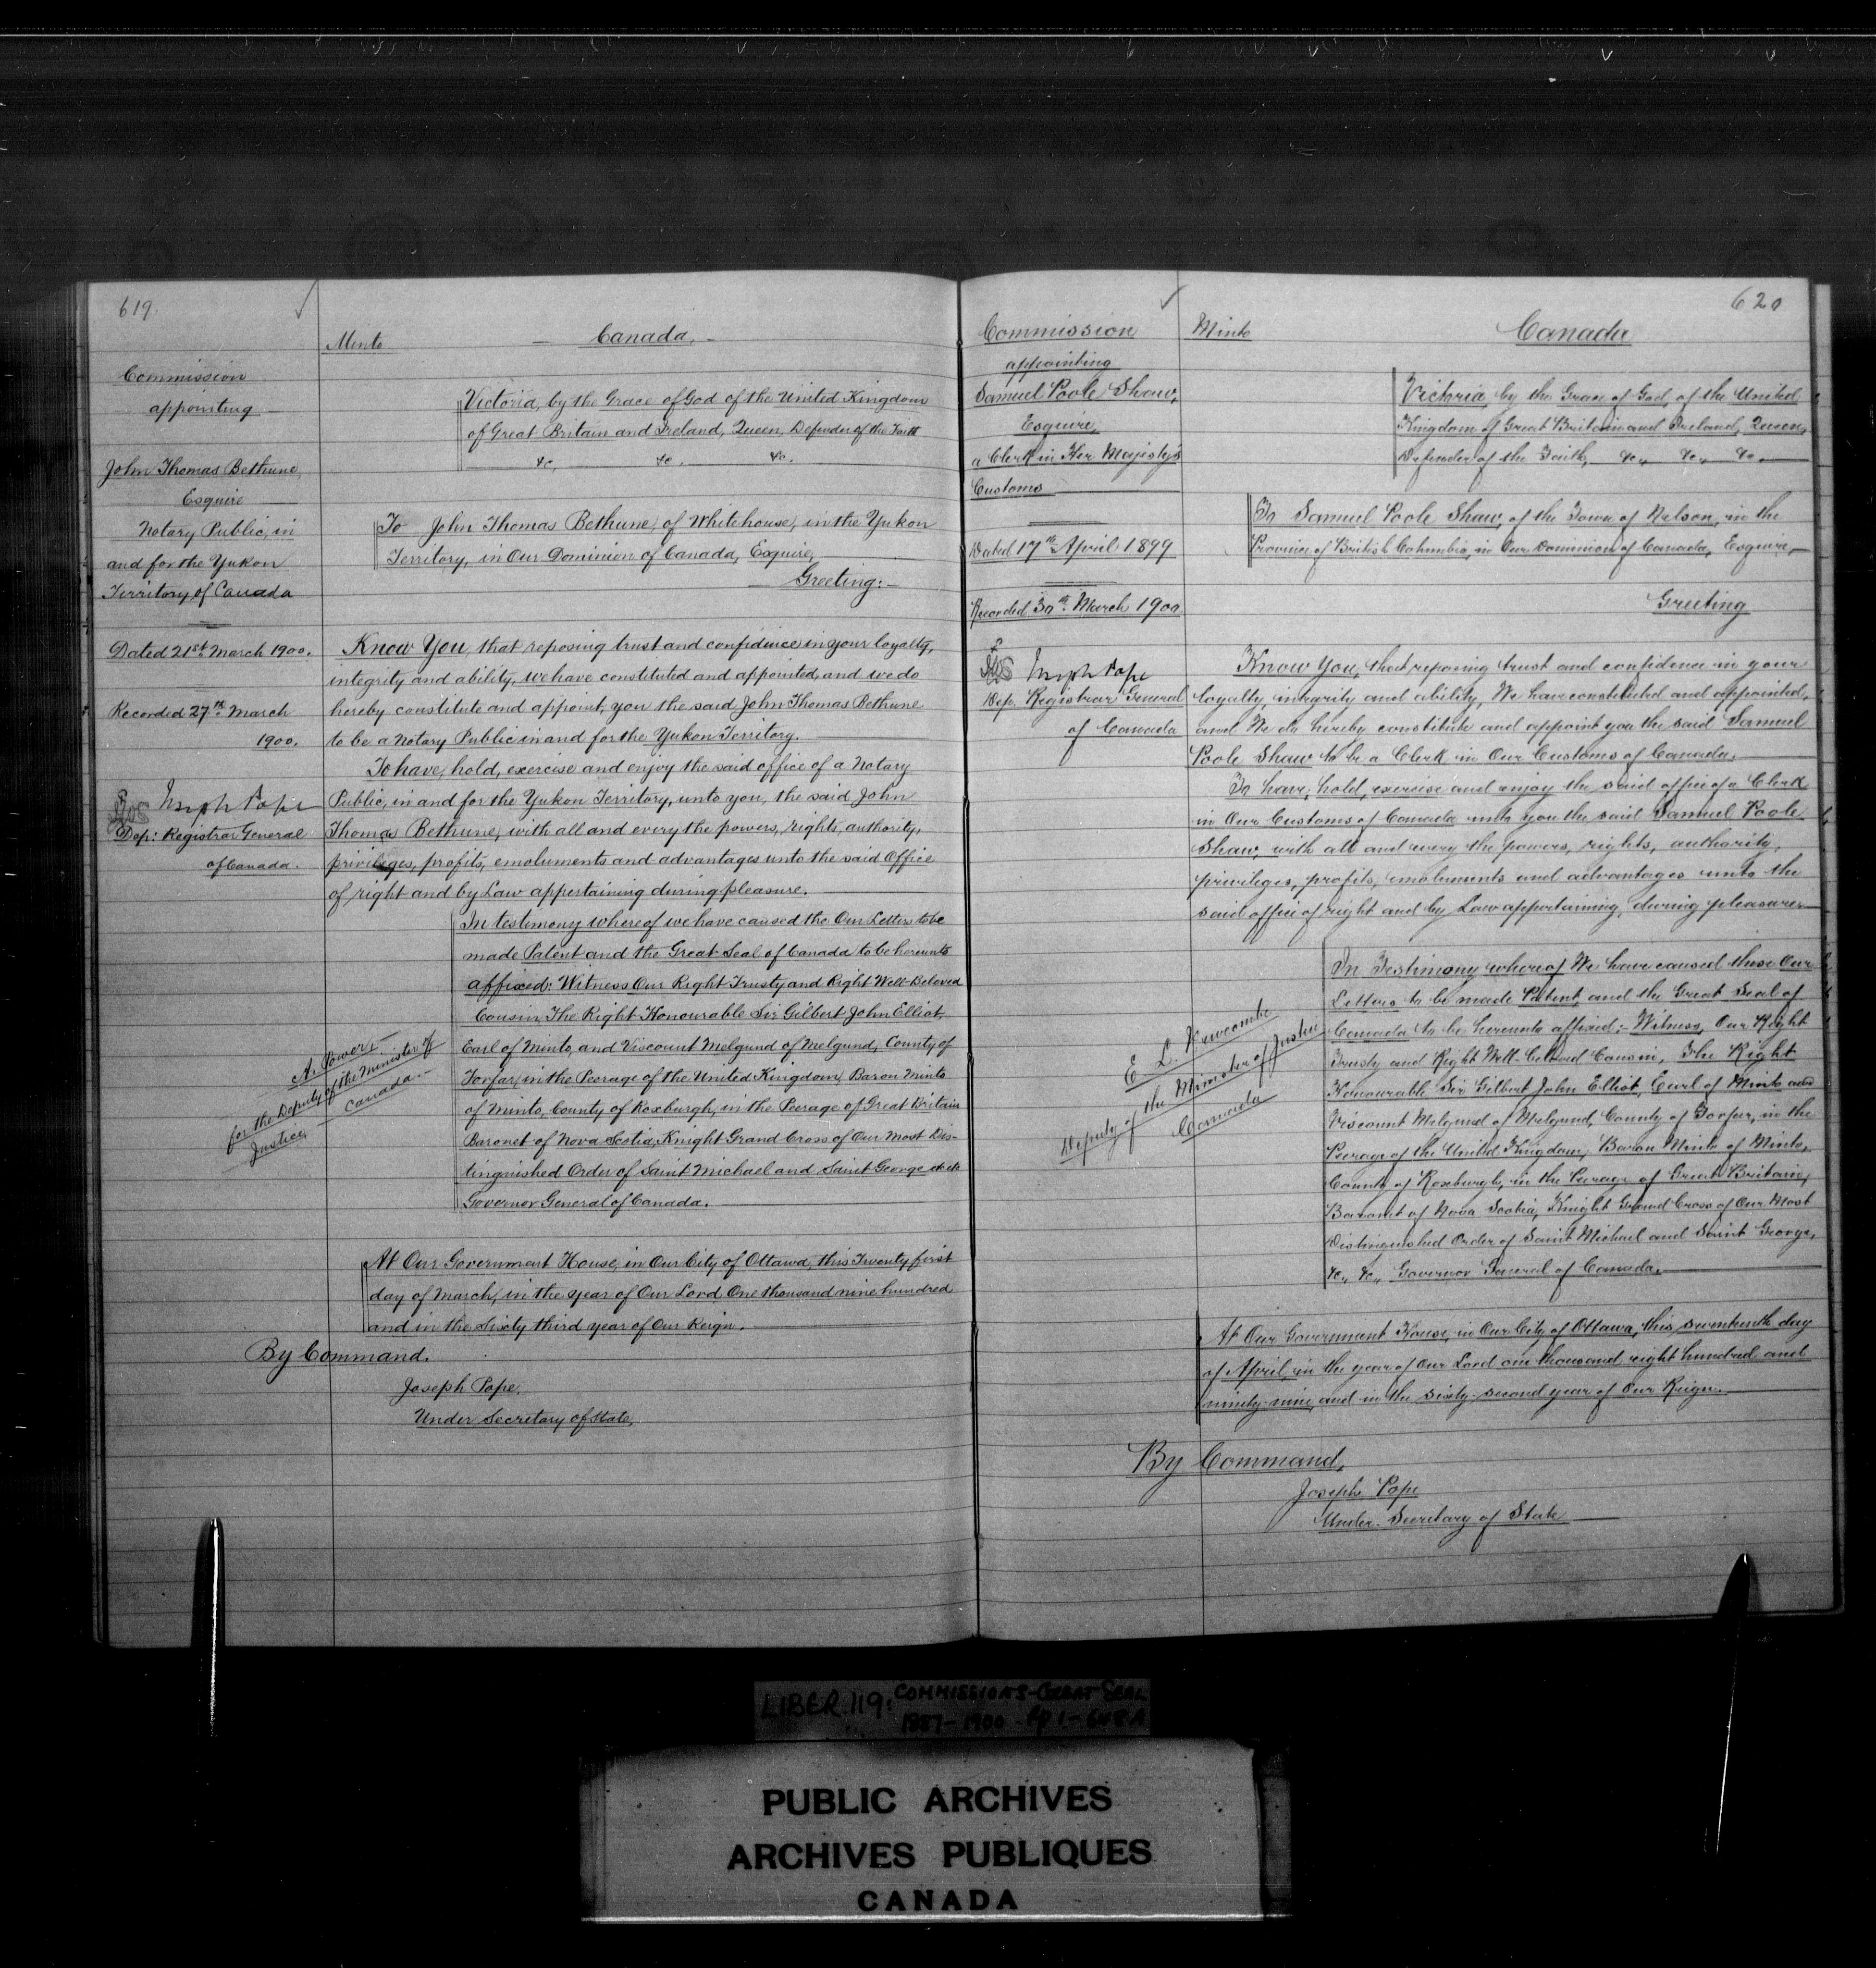 619.
Minto
Canada.
Commission
appointing
John Thomas Bethune
Esquire
Notary Public, in
and for the Yukon
Territory of Canada
Dated 21st March 1900.
Recorded 27th March
1900.
Joseph Pope
Dep: Registrar General
of Canada.
Victoria, by the Grace of God of the United Kingdom
of Great Britain and Ireland, Queen, Defender of the Faith
&c, &c. &c.
To John Thomas Bethune, of Whitehouse, in the Yukon
Territory, in Our Dominion of Canada, Esquire,
Greeting:
Know You, that reposing trust and confidence in your loyalty,
integrity and ability, we have constituted and appointed, and we do
hereby constitute and appoint, you the said John Thomas Bethune
to be a Notary Public in and for the Yukon Territory.
To have, hold, exercise and enjoy the said office of a Notary
Public, in and for the Yukon Territory, unto you, the said John
Thomas Bethune, with all and every the powers, rights, authority,
privileges, profits, emoluments and advantages unto the said Office
of right and by Law appertaining during pleasure.
In testimony whereof we have caused the Our Letters to be
made Patent and the Great Seal of Canada to be hereunto
affixed: Witness Our Right Trusty and Right Well-Beloved
Cousin, The Right Honourable Sir Gilbert John Elliot,
Earl of Minto, and Viscount Melgund of Melgund, County of
Forfar, in the Peerage of the United Kingdom, Baron Minto
of Minto, County of Roxburgh, in the Peerage of Great Britain
Baronet of Nova Scotia, Knight Grand Cross of Our Most Dis-
tinguished Order of Saint Michael and Saint George &c &c
Governor General of Canada.
A. Power
for the Deputy of the Minister of
Justice, Canada.
At Our Government House, in Our City of Ottawa, this Twenty first
day of March, in the year of Our Lord, One thousand nine hundred
and in the Sixty third year of Our Reign.
By Command.
Joseph Pope,
Under Secretary of State,
620
Minto
Canada
Commission
appointing
Samuel Poole Shaw,
Esquire,
a Clerk in Her Majesty's
Customs
Dated 17th April 1899
Recorded 30th March 1900
Joseph Pope
Dep. Registrar General
of Canada
Victoria, by the Grace of God, of the United
Kingdom of Great Britain and Ireland, Queen,
Defender of the Faith, &c., &c., &c.
To Samuel Poole Shaw, of the Town of Nelson, in the
Province of British Columbia, in Our Dominion of Canada, Esquire,
Greeting
Know You, that reposing trust and confidence in your
loyalty, integrity and ability, We have constituted and appointed,
and We do hereby constitute and appoint you the said Samuel
Poole Shaw to be a Clerk in Our Customs of Canada.
To have, hold, exercise and enjoy the said office of a Clerk
in Our Customs of Canada unto you the said Samuel Poole
Shaw, with all and every the powers, rights, authority,
privileges, profits, emoluments and advantages unto the
said office of right and by Law appertaining, during pleasure.
In Testimony whereof We have caused these Our
Letters to be made Patent, and the Great Seal of
Canada to be hereunto affixed:- Witness, Our Right
Trusty and Right Well-beloved Cousin, The Right
Honourable Sir Gilbert John Elliot, Earl of Minto and
Viscount Melgund of Melgund, County of Forfar, in the
Peerage of the United Kingdom, Baron Minto of Minto,
County of Roxburgh, in the Peerage of Great Britain,
Baronet of Nova Scotia, Knight Grand Cross of Our Most
Distinguished Order of Saint Michael and Saint George,
&c., &c., Governor General of Canada.
E. L. Newcombe
Deputy of the Minister of Justice
Canada
At Our Government House, in Our City of Ottawa, this seventeenth day
of April, in the year of Our Lord one thousand eight hundred and
ninety-nine, and in the sixty-second year of Our Reign.
By Command,
Joseph Pope
Under-Secretary of State
LIBER 119: COMMISSIONS-GREAT SEAL
1887-1900-pp 1-648A
PUBLIC ARCHIVES
ARCHIVES PUBLIQUES
CANADA